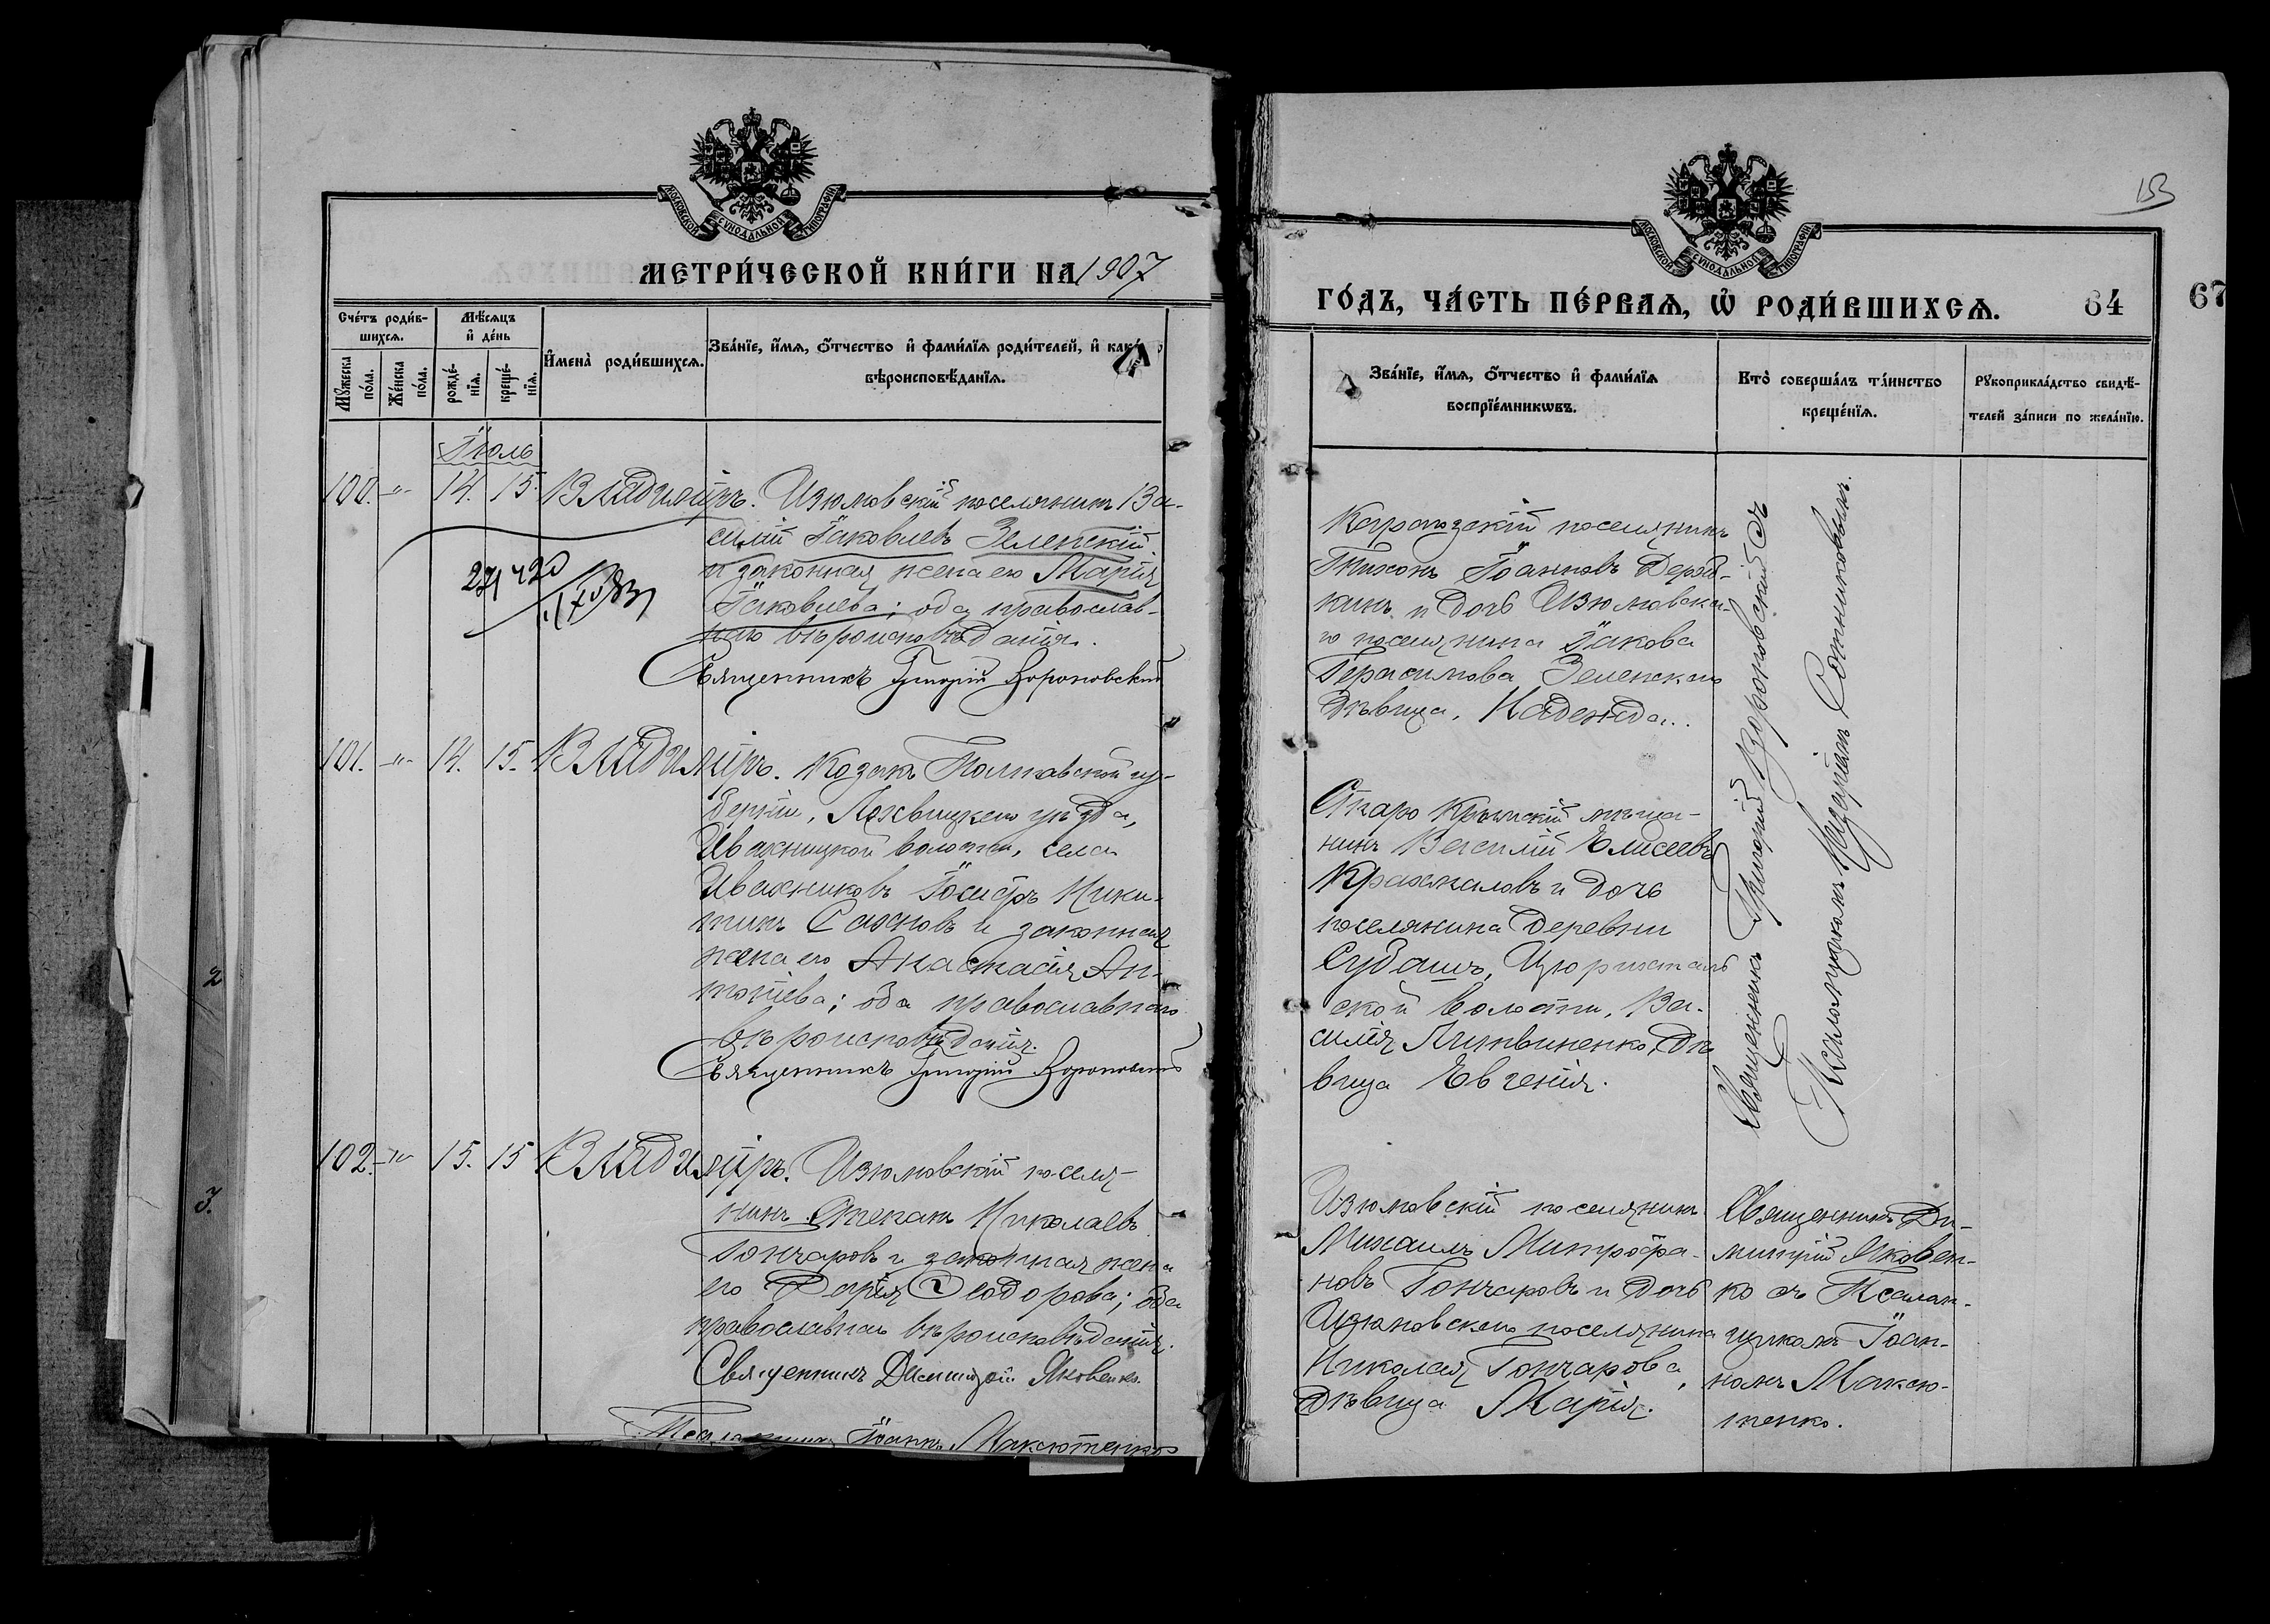 МОСКОВСКОЙ СѴНОДАЛЬНОЙ ТИПОГРАФІИ
МЕТРИ́ЧЕСКОЙ КНИ́ГИ НА 1907
Сче́тъ роди́в-
шихсѧ.
Мѣ́сѧцъ
и҆ де́нь
И҆мена̀ роди́вшихсѧ.
Зва́нїе, и҆́мѧ, ѻ҆́тчество и҆ фами́лїѧ роди́телей, и҆ како́
вѣроисповѣ́данїѧ.
Мꙋ́жеска
по́ла.
Же́нска
по́ла.
рожде́-
нїѧ.
креще́-
нїѧ.
Іюль
100. -"- 14. 15. Владиміръ. Изюмовскій поселянинъ Ва-
силій Іаковлевъ Зеленскій
и законная жена его Марія
Іаковлева; оба православ-
наго вѣроисповѣданія.
Священникъ Григорій Вороновскій
101. -"- 14. 15. Владиміръ. Козакъ Полтавской гу-
берніи, Лохвицкаго уѣзда,
Ивахницкой волости, села
Ивахниковъ Іосифъ Ники-
тинъ Сахновъ и законная
жена его Анастасія Ан-
тоніева; оба православнаго
вѣроисповѣданія.
Священникъ Григорій Вороновскій
102. -"- 15. 15 Владиміръ. Изюмовскій поселя-
нинъ Стефанъ Николаевъ
Гончаровъ и законная жена
его Дарія Ѳеодорова; оба
православнаго вѣроисповѣданія.
Священникъ Димитрій Яковенко.
Псаломщикъ Іоаннъ Максютенко
153
МОСКОВСКОЙ СѴНОДАЛЬНОЙ ТИПОГРАФІИ
ГО́ДЪ, ЧА́СТЬ ПЕ́РВАѦ, Ѡ҆ РОДИ́ВШИХСѦ. 64
67
Зва́нїе, и҆́мѧ, ѻ҆́тчество и҆ фами́лїѧ
воспрїе́мникѡвъ.
Кто̀ соверша́лъ та́инство
креще́нїѧ.
Рꙋкоприкла́дство свидѣ́-
телей за́писи по жела́нїю.
поселянинъ
Тихонъ Іоанновъ
и дочь Изюмовска-
го поселянина Іакова
Герасимова Зеленскаго
дѣвица, Надежда.
Священникъ Григорій Вороновскій съ
Псаломщикомъ Назаріемъ Сотниковымъ.
Старо Крымскій мѣща-
нинъ Василій Елисеевъ
и дочь
поселянина деревни
Субашъ, Цюрихталь
ской волости, Ва-
силія Литвиненко, дѣ
вица Евгенія.
Изюмовскій поселянинъ
Михаилъ Митрофа-
новъ Гончаровъ и дочь
Изюмовскаго поселянина
Николая Гончарова,
дѣвица Марія.
Священникъ Ди-
митрій Яковен-
ко съ Псалом-
щикомъ Іоан-
номъ Максю-
тенко.
2
3.